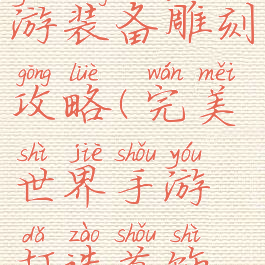 游装备雕刻
gōng lüè wán měi
攻略(完美
shì jiè shǒu yóu
世界手游
dǎ zào shǒu shì
打造首饰